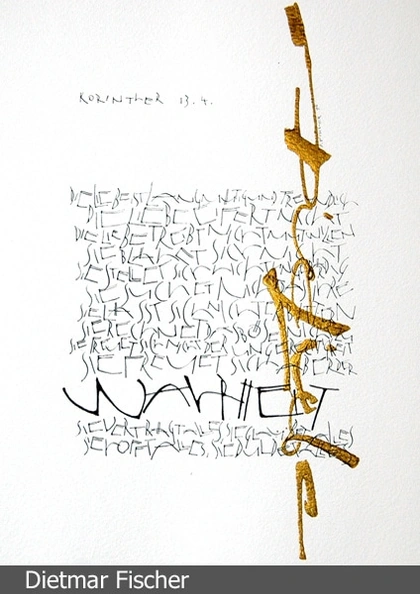 KORINTHER 13.4.
DIE LIEBE IST LANGMÜTIG UND FREUNDLICH
DIE LIEBE EIFERT NICHT
DIE LIEBE TREIBT NICHT MUTWILLEN
SIE BLÄHT SICH NICHT
SIE STELLET SICH NICHT
SIE SUCHT NICHT IHRE
SIE LÄSST SICH NICHT
SIE RECHNET DAS BÖSE NICHT
SIE FREUET SICH NICHT DER UNGERECHTIGKEIT
SIE FREUET SICH ABER DER
WAHRHEIT
SIE VERTRÄGT ALLES SIE GLAUBET ALLES
SIE HOFFT ALLES, SIE DULDET ALLES
Dietmar Fischer